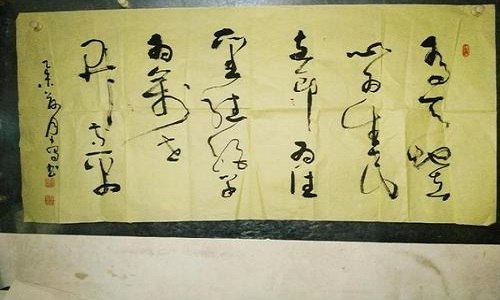 为天地立
心为生民
立命为往
圣继绝学
为万世
开太平